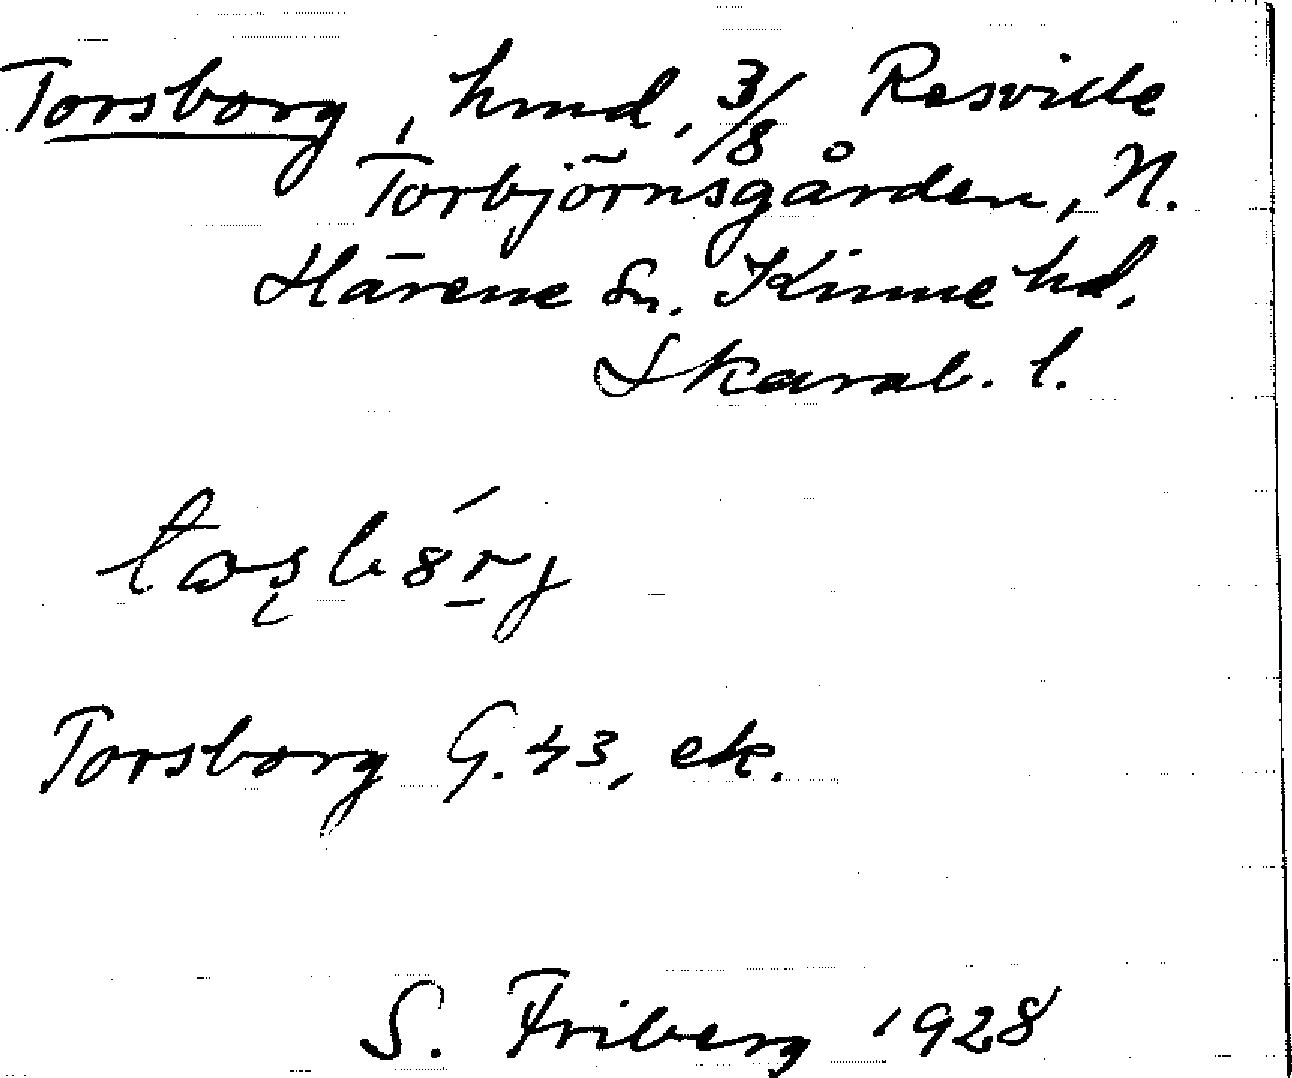 Torsborg, hmd. 3/8 Resville
Torbjörnsgården, N.
Härene sn. Kinne hd.
Skarab. l.
Torsborg G. 43, ek.
S. Friberg 1928